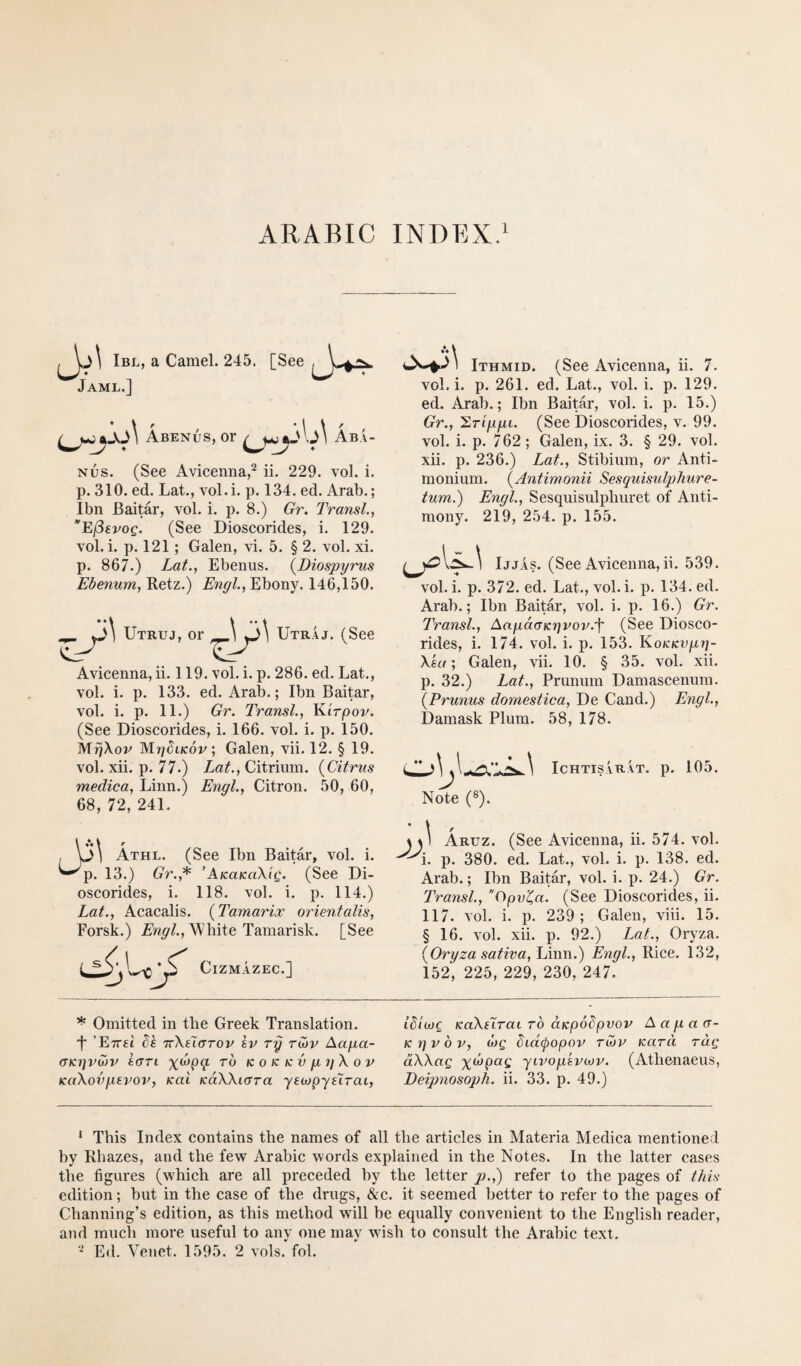 ARABIC INDEX.¹
إبل Ibl, a Camel. 245. [See جمل
Jaml.]
آبنوس Ábenús, or آبانوس Ábá-
nús. (See Avicenna,² ii. 229. vol. i.
p. 310. ed. Lat., vol. i. p. 134. ed. Arab.;
Ibn Baitár, vol. i. p. 8.) Gr. Transl.,
Ἔβενος. (See Dioscorides, i. 129.
vol. i. p. 121; Galen, vi. 5. § 2. vol. xi.
p. 867.) Lat., Ebenus. (Diospyrus
Ebenum, Retz.) Engl., Ebony. 146,150.
اترج Utruj, or اتراج Utráj. (See
Avicenna, ii. 119. vol. i. p. 286. ed. Lat.,
vol. i. p. 133. ed. Arab.; Ibn Baitar,
vol. i. p. 11.) Gr. Transl., Κίτρον.
(See Dioscorides, i. 166. vol. i. p. 150.
Μῆλον Μηδικόν; Galen, vii. 12. § 19.
vol. xii. p. 77.) Lat., Citrium. (Citrus
medica, Linn.) Engl., Citron. 50, 60,
68, 72, 241.
اثل Áthl. (See Ibn Baitár, vol. i.
p. 13.) Gr.,* Ἀκακαλίς. (See Di-
oscorides, i. 118. vol. i. p. 114.)
Lat., Acacalis. (Tamarix orientalis,
Forsk.) Engl., White Tamarisk. [See
كزمازك Cizmázec.]
اثمد Ithmid. (See Avicenna, ii. 7.
vol. i. p. 261. ed. Lat., vol. i. p. 129.
ed. Arab.; Ibn Baitár, vol. i. p. 15.)
Gr., Στίμμι. (See Dioscorides, v. 99.
vol. i. p. 762; Galen, ix. 3. § 29. vol.
xii. p. 236.) Lat., Stibium, or Anti-
monium. (Antimonii Sesquisulphure-
tum.) Engl., Sesquisulphuret of Anti-
mony. 219, 254. p. 155.
اجاص Ijjás. (See Avicenna, ii. 539.
vol. i. p. 372. ed. Lat., vol. i. p. 134. ed.
Arab.; Ibn Baitár, vol. i. p. 16.) Gr.
Transl., Δαμάσκηνον.† (See Diosco-
rides, i. 174. vol. i. p. 153. Κοκκυμη-
λέα; Galen, vii. 10. § 35. vol. xii.
p. 32.) Lat., Prunum Damascenum.
(Prunus domestica, De Cand.) Engl.,
Damask Plum. 58, 178.
اختصارات Ichtisárát. p. 105.
Note (⁸).
ارز Áruz. (See Avicenna, ii. 574. vol.
i. p. 380. ed. Lat., vol. i. p. 138. ed.
Arab.; Ibn Baitár, vol. i. p. 24.) Gr.
Transl., Ὄρυζα. (See Dioscorides, ii.
117. vol. i. p. 239; Galen, viii. 15.
§ 16. vol. xii. p. 92.) Lat., Oryza.
(Oryza sativa, Linn.) Engl., Rice. 132,
152, 225, 229, 230, 247.
* Omitted in the Greek Translation.
† Ἐπεὶ δὲ πλεῖστον ἐν τῇ τῶν Δαμα-
σκηνῶν ἐστι χώρᾳ τὸ κοκκύμηλον
καλούμενον, καὶ κάλλιστα γεωργεῖται,
ἰδίως καλεῖται τὸ ἀκρόδρυον Δαμασ-
κηνὸν, ὡς διάφορον τῶν κατὰ τὰς
ἄλλας χώρας γινομένων. (Athenaeus,
Deipnosoph. ii. 33. p. 49.)
¹ This Index contains the names of all the articles in Materia Medica mentioned
by Rhazes, and the few Arabic words explained in the Notes. In the latter cases
the figures (which are all preceded by the letter p.,) refer to the pages of this
edition; but in the case of the drugs, &c. it seemed better to refer to the pages of
Channing's edition, as this method will be equally convenient to the English reader,
and much more useful to any one may wish to consult the Arabic text.
² Ed. Venet. 1595. 2 vols. fol.